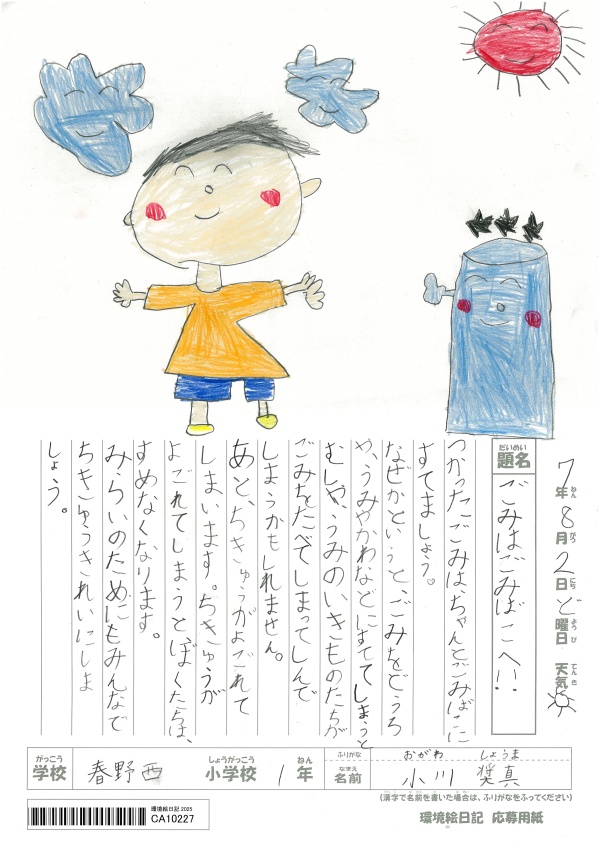 7年ねん8月がつ2日にちど曜日ようび 天気てんき
題名だいめい ごみはごみばこへ!!
つかったごみは、ちゃんとごみばこに
すてましょう。
なぜかというと、ごみをどうろ
や、うみやかわなどにすててしまうと
むしや、うみのいきものたちが
ごみをたべてしまってしんで
しまうかもしれません。
あとちきゅうがよごれて
しまいます。ちきゅうが
よごれてしまうと、ぼくたちは、
すめなくなります。
みらいのためにもみんなで
ちきゅうをきれいにしま
しょう。
学校がっこう 春野西 小学校しょうがっこう 1年ねん
ふりがな おがわ しょうま
名前なまえ 小川 奨真
(漢字で名前を書いた場合は、ふりがなをふってください)
環境絵日記 2025
CA10227
環境絵日記 応募用紙